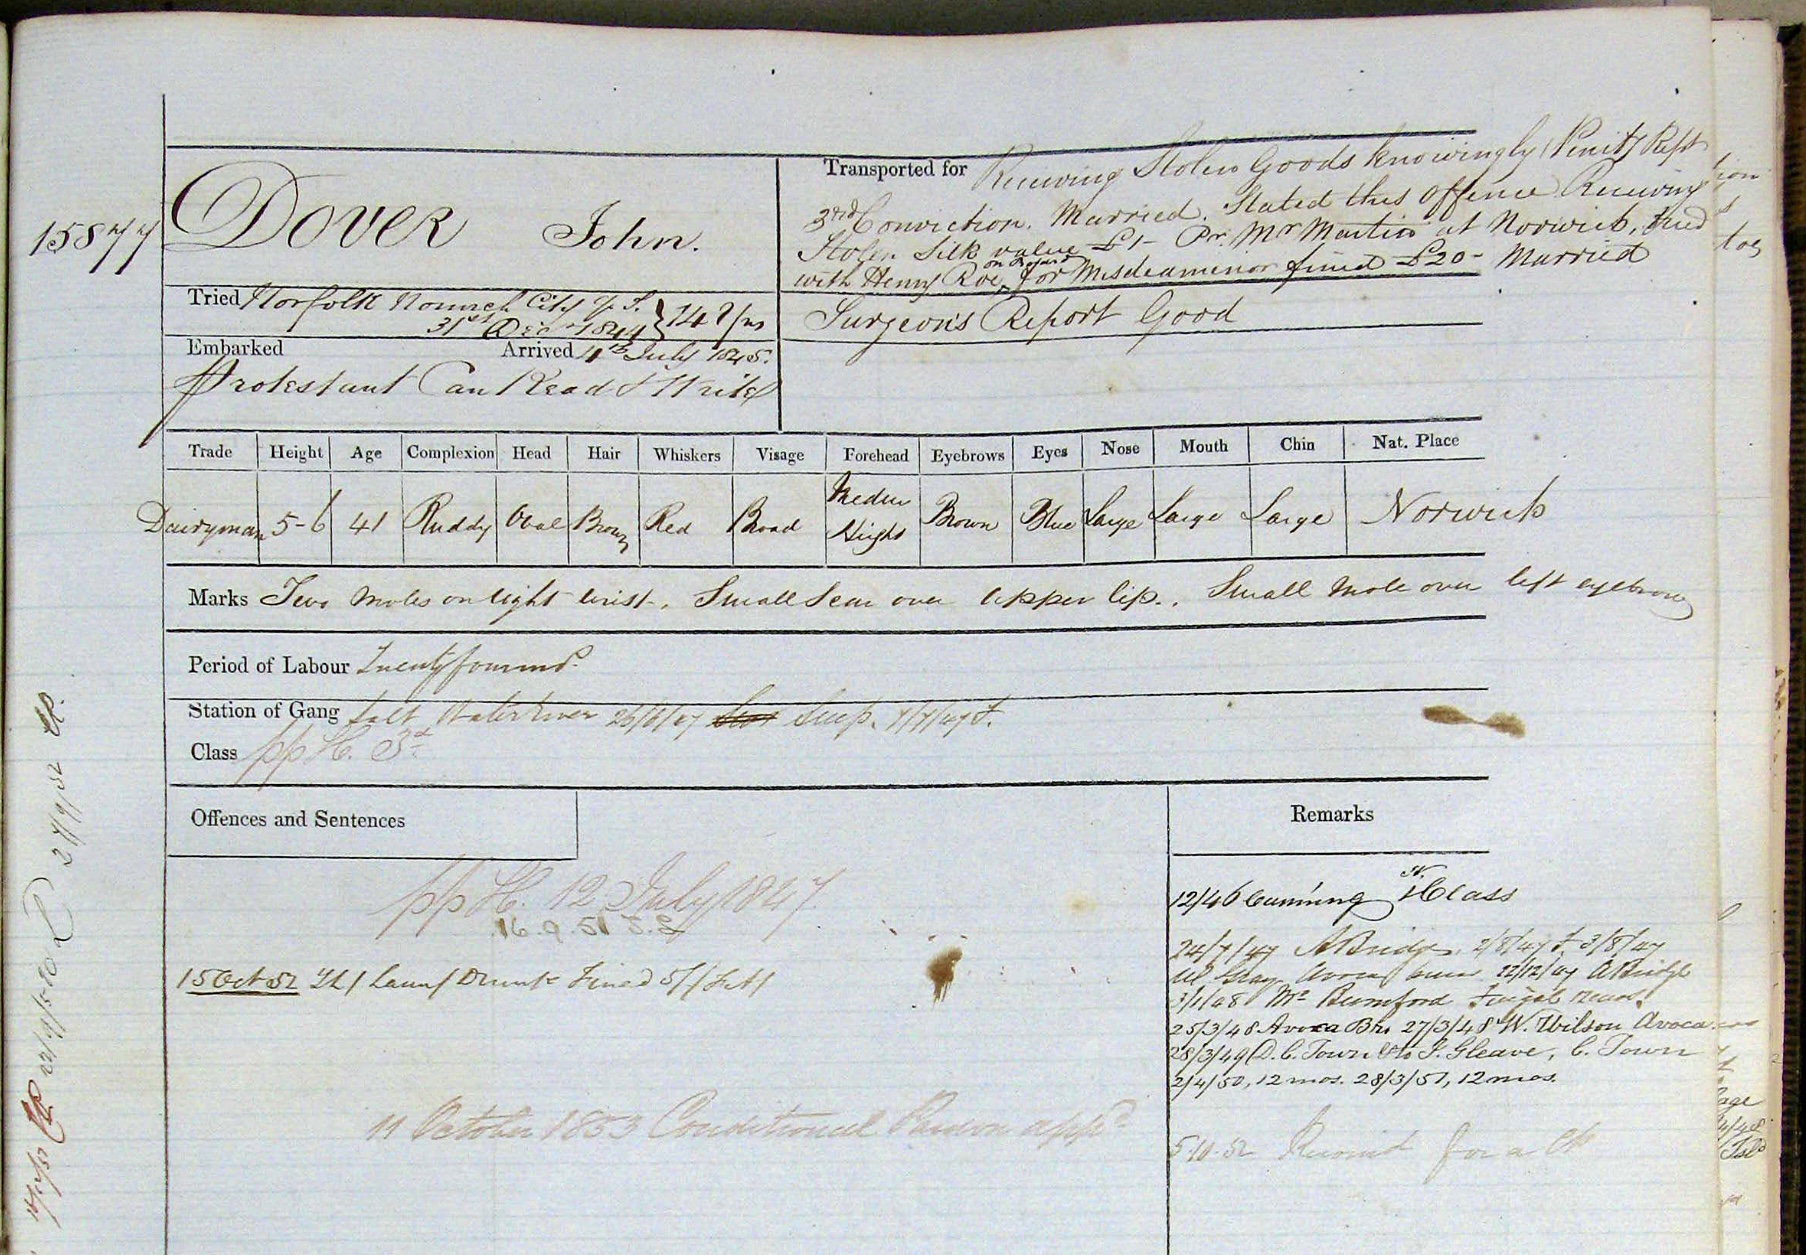 15877
Dover John.
Transported for Receiving Stolen Goods knowingly
3rd Conviction. Married. Stated this Offence Receiving
Stolen Silk value £1- Pr. Mr Martin at Norwich, tried
with Henry Roe, for Misdeamenor fined £20- Married
Surgeons Report Good
Tried Norfolk Norwich City
31st Decr 1844 14 Yrs
Embarked Arrived July 1845.
Protestant Can Read & Write
Trade Height Age Complexion Head Hair Whiskers Visage Forehead Eyebrows Eyes Nose Mouth Chin Nat. Place
Dairyman 5-6 41 Ruddy Oval Brown Red Broad Medm High Brown Blue Large Large Large Norwich
Marks Two moles on right wrist, Small Scar over upper lip. Small mole over left eyebrow
Period of Labour Twenty four mos
Station of Gang Salt Water River
Class pp H. 3d
Offences and Sentences Remarks
pp H. 12 July 1847
16.9.51 T.L
15 Oct 52 TL/ Drunk Fined 5/
11 October 1853 Conditional Pardon appd
Class
24/7/47 A Bridge 2/8/47 3/8/47
Avoca 22/12/47 A Bridge
3/1/48 Mr Bumford Fingal
25/3/48 Avoca 27/3/48 W. Wilson Avoca
28/3/49 C. Town J. Gleave, C. Town
2/4/50, 12 mos. 28/3/51, 12 mos.
5.10.52 for a CP